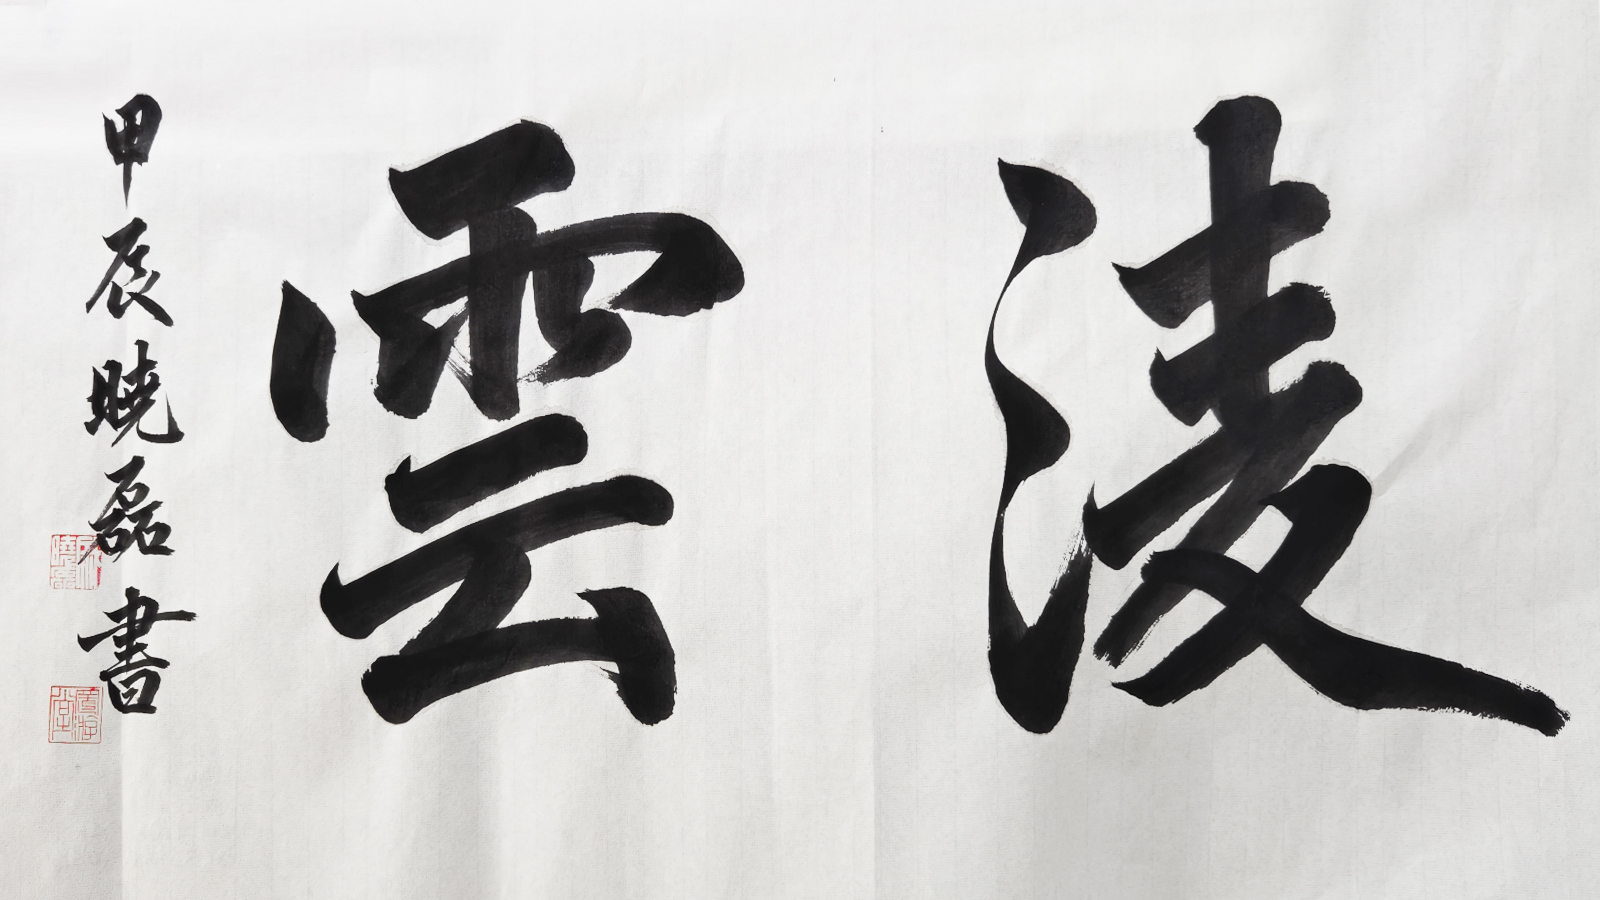 淩雲
甲辰曉磊書